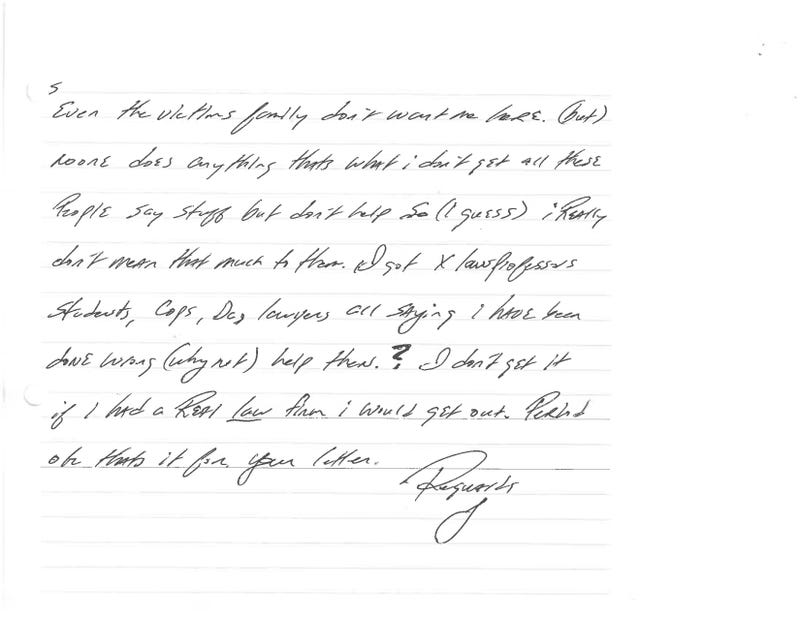 5
Even the victims family don't want me here. (but)
noone does anything thats what i don't get all these
People say stuff but don't help So (I guess) i Really
don't mean that much to them. I got X law Professors
Students, Cops, Da, lawyers all saying i have been
done wrong (why not) help then. ? I don't get it
if I had a Real law firm i would get out. Period
ok thats it for your letter.
Reguards